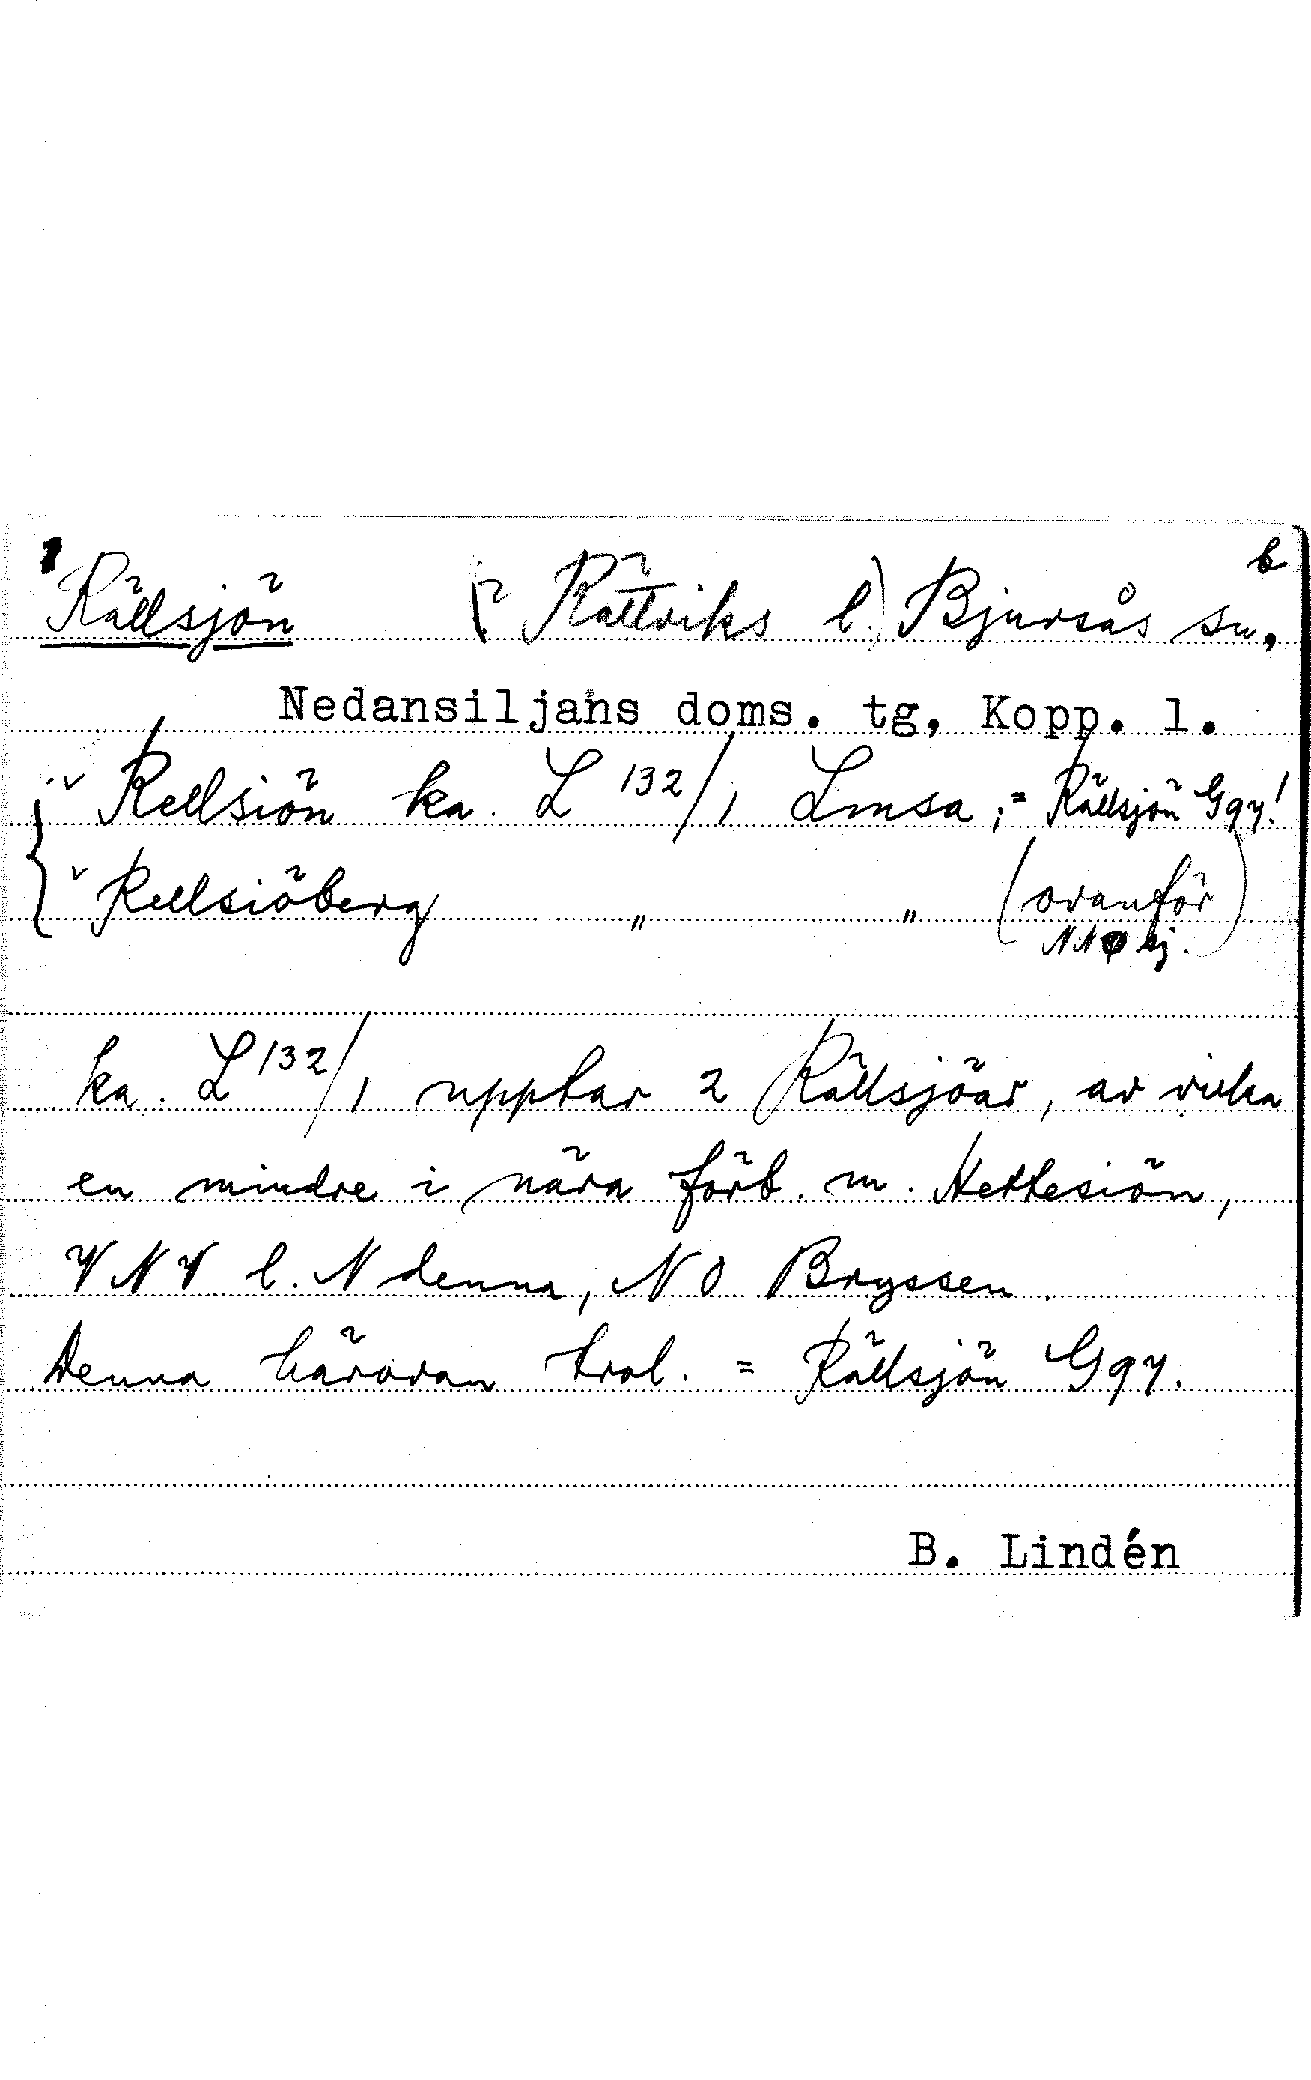 b
Rällsjön (? Rättviks l.) Bjursås sn,
Nedansiljans doms. tg, Kopp. l.
Rellsiön ka. L 132/1 Lmsa, = Rällsjön Gqy!
Rellsiöberg " " (ovanför
NNO sj.)
ka. L 132/1 upptar 2 Rällsjöar, av vilka
en mindre i nära förb. m. Nettesiön,
VNV l. N denna, NO Bryssen.
Denna härovan trol. = Rällsjön Gqy.
B. Lindén